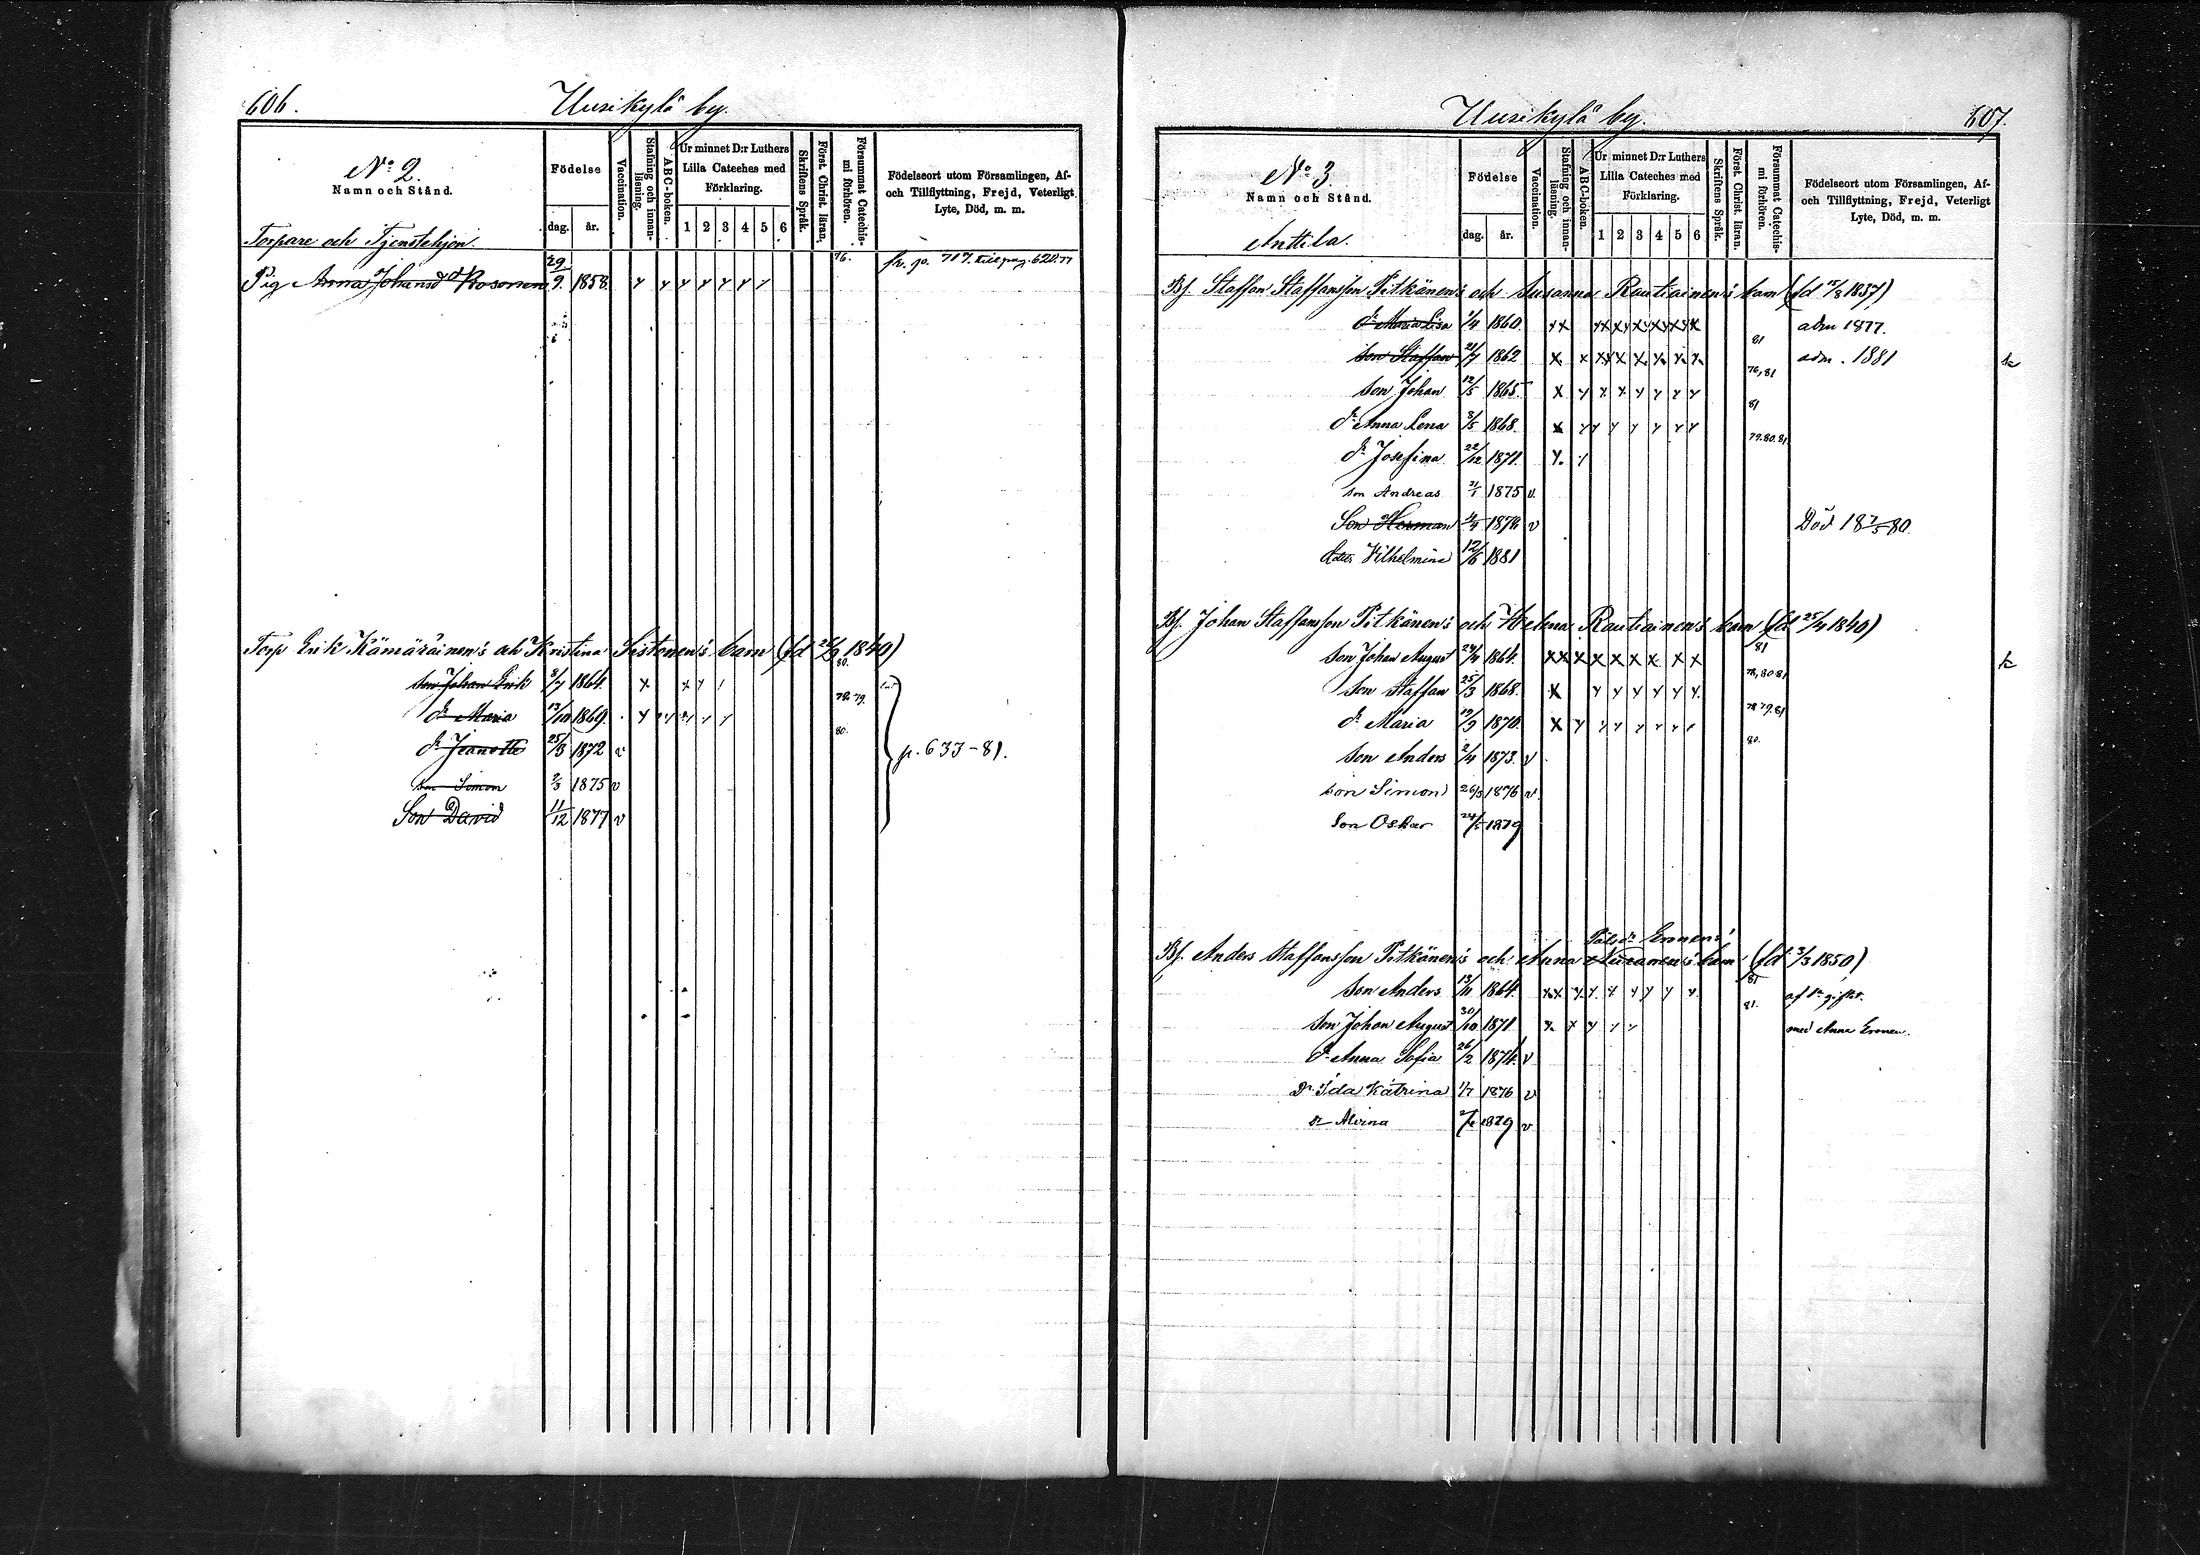 606. Uusikylä by.
No 2. Namn och Stånd. Födelse Vaccination. Stafning och innanläsning. ABC-boken. Ur minnet D:r Luthers Lilla Cateches med Förklaring. Skriftens Språk. Först. Christ. läran. Försummat Catechismi förhören. Födelseort utom Församlingen, Af- och Tillflyttning, Frejd, Veterligt Lyte, Död, m. m.
dag. år. 1 2 3 4 5 6
Torpare och Tjenstehjon.
Pig Anna Johansdr Rosonen 29/9. 1858. 76. fr. p. 717. till pag. 620.77
Torp Erik Kämäräinen's och Kristina Sistonen's barn (fd 1840)
son Johan Erik 8/7 1864. 80.
dr Maria 13/10 1869. 78. 79.
dr Jeanette 25/3 1872 v 80. p. 633-81.
son Simon 2/3 1875 v
Son David 11/12 1877 v
Uusikylä by. 607.
No 3. Namn och Stånd. Födelse Vaccination. Stafning och innanläsning. ABC-boken. Ur minnet D:r Luthers Lilla Cateches med Förklaring. Skriftens Språk. Först. Christ. läran. Försummat Catechismi förhören. Födelseort utom Församlingen, Af- och Tillflyttning, Frejd, Veterligt Lyte, Död, m. m.
Anttila. dag. år. 1 2 3 4 5 6
Bf. Staffan Staffansson Pitkänen's och Susanna Rautiainen's barn (fd 1837)
dr Maria Lisa 1/4 1860. adm 1877.
son Staffan 21/7 1862 81 adm. 1881
son Johan 12/5 1865 76, 81
dr Anna Lena 3/5 1868. 81
dr Josefina 22/12 1871. 79. 80. 81
son Andreas 1875 v.
Son Herman 4/4 1878 v Död 18 7/5 80.
dotter Vilhelmina 12/6 1881
Bf. Johan Staffansson Pitkänen's och Helena Rautiainen's barn (fd 25/4 1840)
son Johan August 24/4 1864. 81
son Staffan 25/3 1868. 78, 80. 81
dr Maria 19/9 1870. 78 79. 81
son Anders 2/4 1873. v 80.
son Simon 26/3 1876 v.
Son Oskar 24/5 1879
Pålsdr Eronens'
Bf. Anders Staffansson Pitkänen's och Anna barn (fd 3/3 1850)
son Anders 13/11 1864. 81 af 1a giftet.
son Johan August 30/10 1871. 81. med Anna Eronen.
dr Anna Sofia 26/2 1874. v
Dr Ida Katrina 1/7 1876 v
dr Alvina 1879 v